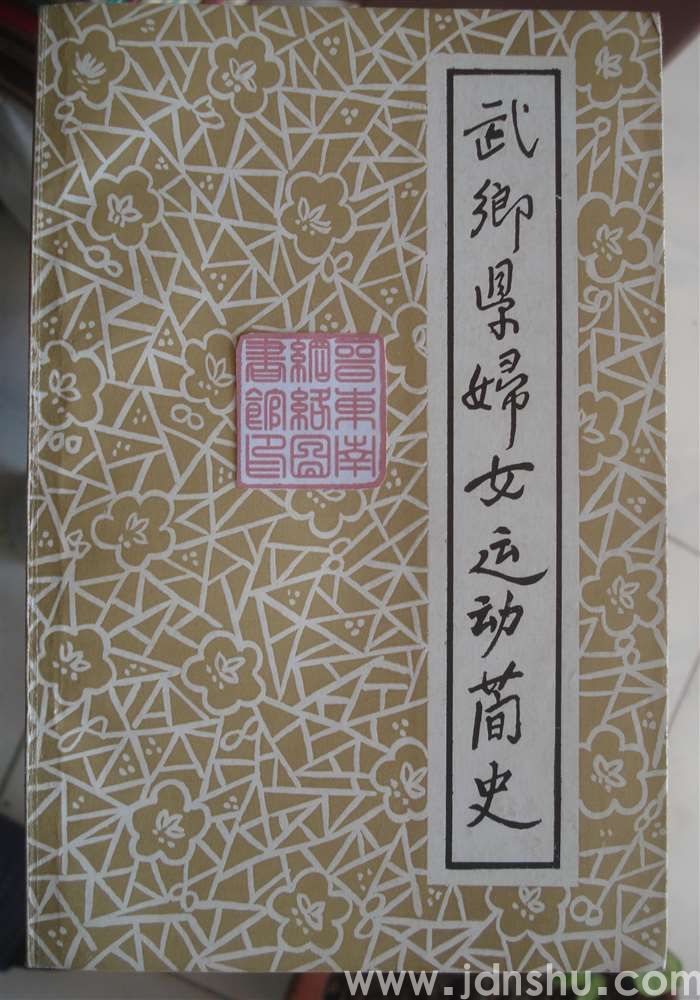 武鄉県婦女运动简史
晉東南
網絡圖
書館印
www.jdnshu.com